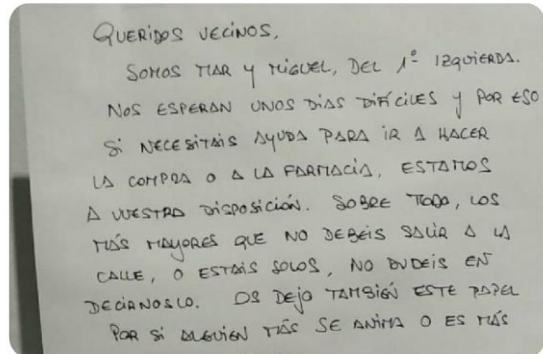 QUERIDOS VECINOS,
SOMOS MAR Y MIGUEL, DEL 1º IZQUIERDA.
NOS ESPERAN UNOS DIAS DIFÍCILES Y POR ESO
SI NECESITAIS AYUDA PARA IR A HACER
LA COMPRA O A LA FARMACIA, ESTAMOS
A VUESTRA DISPOSICIÓN. SOBRE TODO, LOS
MÁS MAYORES QUE NO DEBEIS SALIR A LA
CALLE, O ESTAIS SOLOS, NO DUDEIS EN
DECIRNOSLO. OS DEJO TAMBIÉN ESTE PAPEL
POR SI ALGUIEN MÁS SE ANIMA O ES MÁS